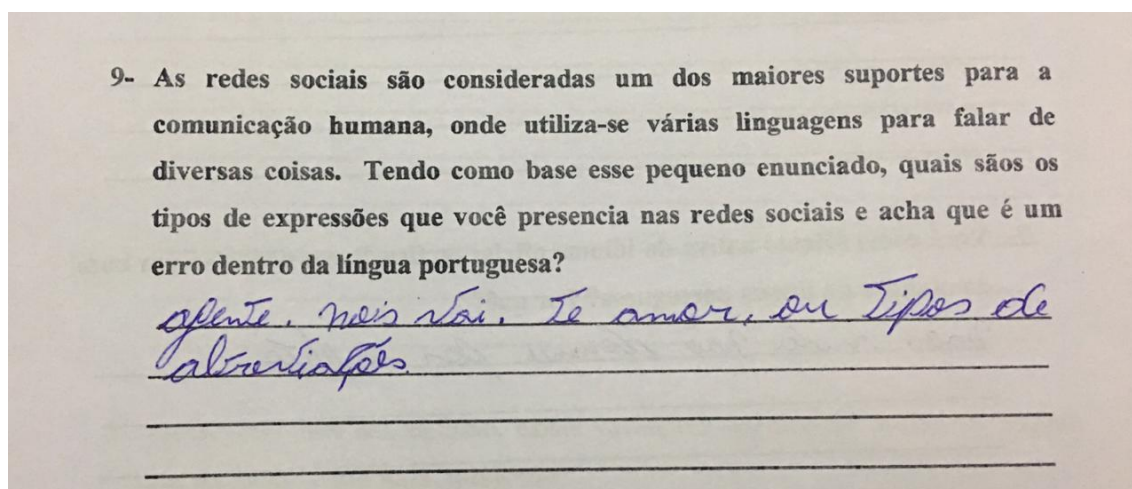 9- As redes sociais são consideradas um dos maiores suportes para a
comunicação humana, onde utiliza-se várias linguagens para falar de
diversas coisas. Tendo como base esse pequeno enunciado, quais sãos os
tipos de expressões que você presencia nas redes sociais e acha que é um
erro dentro da língua portuguesa?
agente, nois vai, te amor, ou tipos de
abreviações